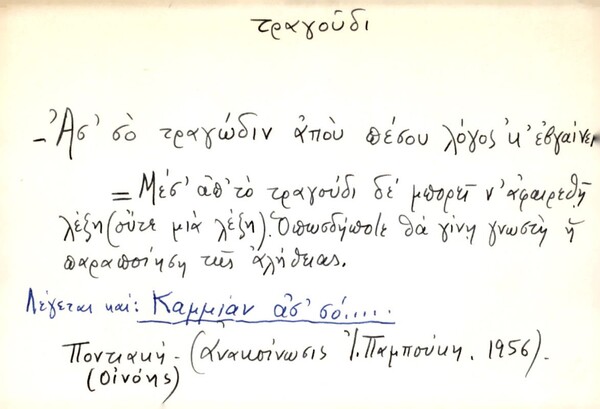 τραγούδι
- Ἀσ' σὸ τραγώδιν ἀποὺ πέσου λόγος 'κ' ἐβγαίνει
= Μέσ' ἀπ' τὸ τραγούδι δέ μπορεῖ ν' ἀφαιρεθῇ
λέξη (οὔτε μιὰ λέξη). Ὁπωσδήποτε θὰ γίνῃ γνωστὴ ἡ
παραποίηση τῆς ἀλήθειας.
Λέγεται καὶ: Καμμίαν ἀσ' σό.....
Ποντιακή - (ἀνακοίνωσις Ἰ. Παμπούκη. 1956).
(Οἰνόης)